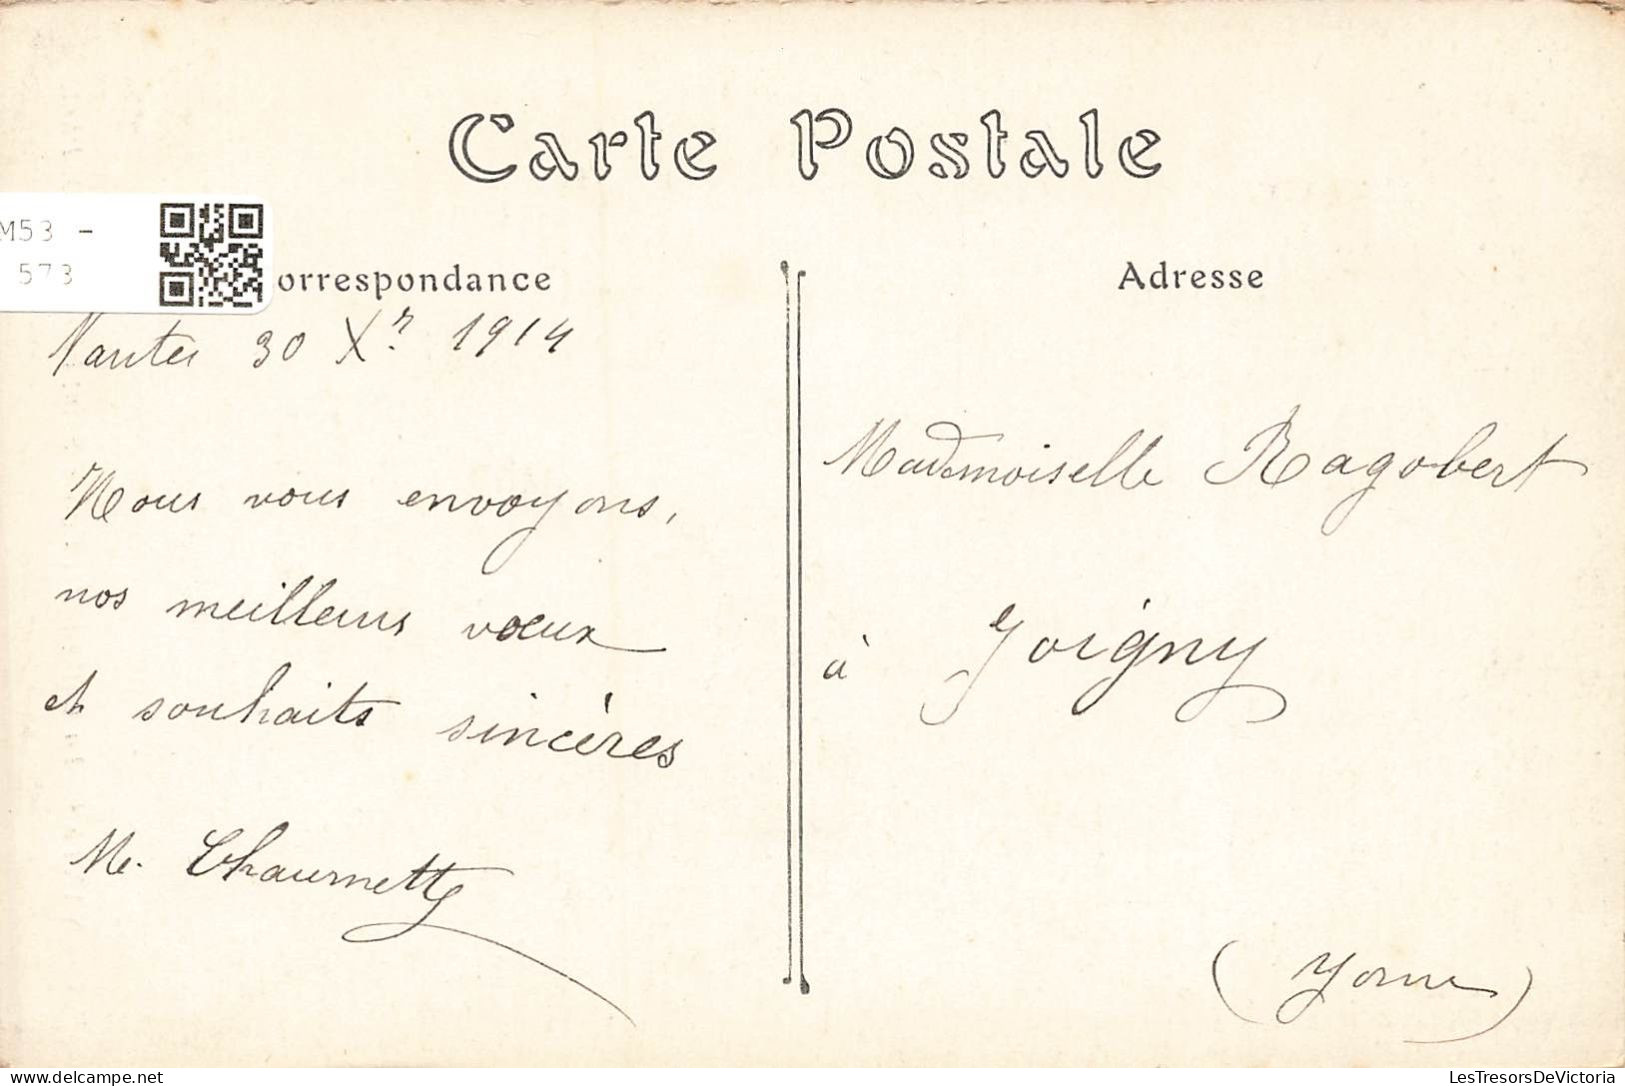 Carte Postale
M53 -
573
orrespondance
Nantes 30 Xr 1914
Nous vous envoyons,
nos meilleurs vœux
et souhaits sincères
M. Chaumette
Adresse
Mademoiselle Ragobert
à Joigny
(Yonne)
delcampe.net
LesTresorsDeVictoria